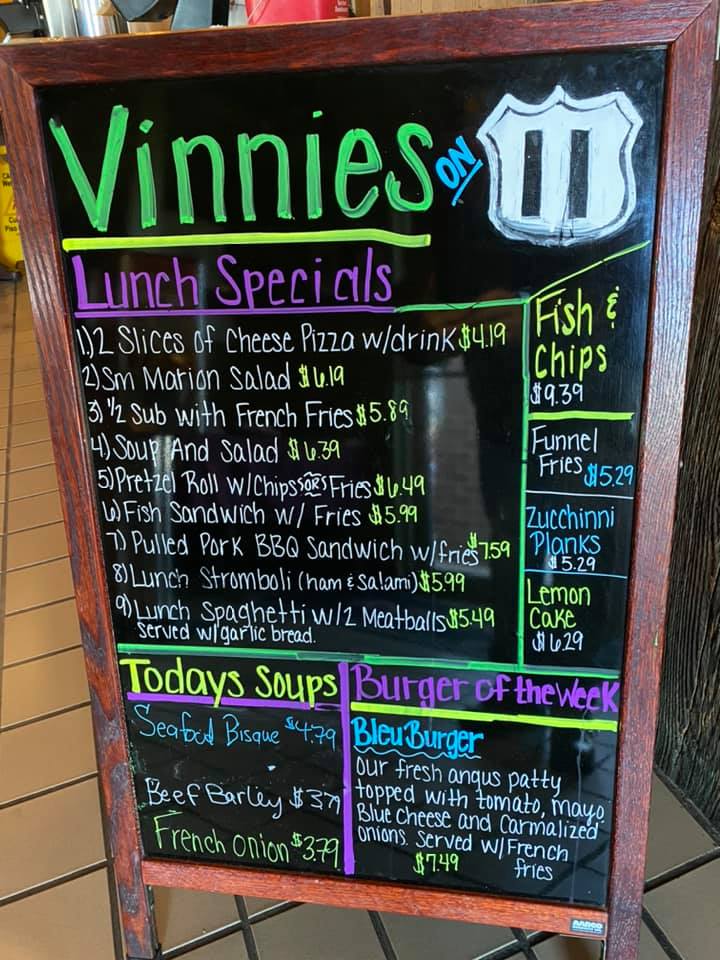 Vinnies ON 11
Lunch Specials
1.) 2 Slices of Cheese Pizza w/drink $4.19
2) Sm Marion Salad $6.19
3) 1/2 Sub with French Fries $5.89
4) Soup And Salad $6.39
5) Pretzel Roll w/Chips "OR" Fries $6.49
6) Fish Sandwich w/ Fries $5.99
7) Pulled Pork BBQ Sandwich w/fries $7.59
8) Lunch Stromboli (ham & Salami) $5.99
9) Lunch Spaghetti w/2 Meatballs $5.49
Served w/garlic bread.
Fish &
Chips
$9.39
Funnel
Fries $5.29
Zucchinni
Planks
$5.29
Lemon
Cake
$6.29
Todays Soups
Seafood Bisque $4.79
Beef Barley $3.79
French onion $3.79
Burger of the Week
Bleu Burger
Our fresh angus patty
topped with tomato, mayo,
Blue cheese and Carmalized
onions. Served w/French
fries
$7.49